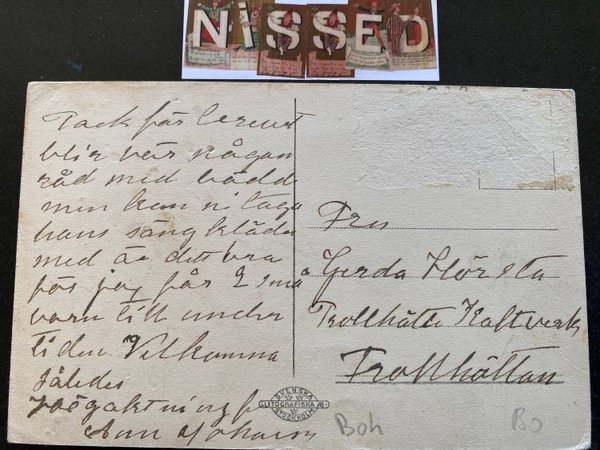 NiSSED
Tack för
blir vår någan
råd med bädd
men kan ni taga
hans sängkläder
med är det bra
för jag får 2 små
barn till under
tiden Välkomna
således
Högaktningsf
Ann Johanson
Fru
Gerda Hörsta
Trollhätte Kaftverk
Trollhättan
SVENSKA
LITOGRAFISKA A.B.
STOCKHOLM
Boh
Bo